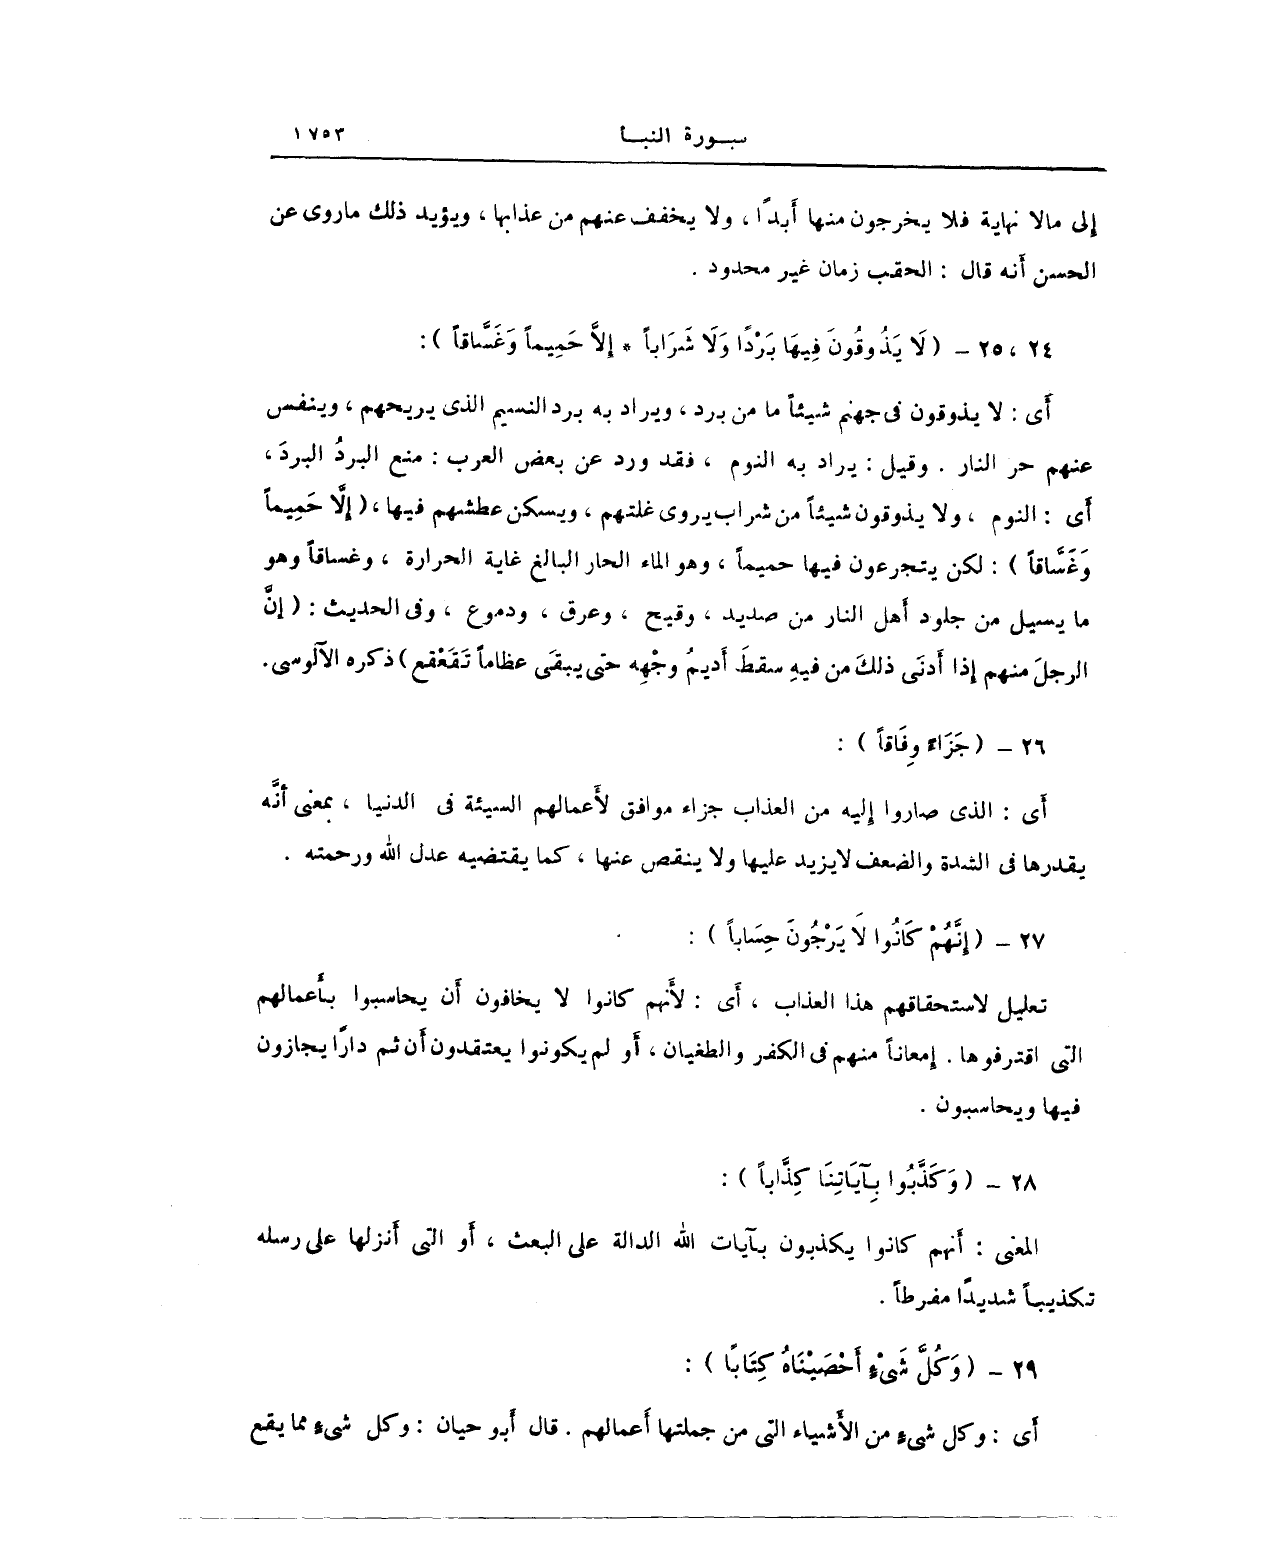 سورة النبأ ١٧٥٣
إلى مالا نهاية فلا يخرجون منها أبدًا ، ولا يخفف عنهم من عذابها ، ويؤيد ذلك ماروى عن
الحسن أنه قال : الحقب زمان غير محدود .
٢٤ ، ٢٥ – ( لَا يَذُوقُونَ فِيهَا بَرْدًا وَلَا شَرَاباً * إِلاَّ حَمِيماً وَغَسَّاقاً ) :
أى : لا يذوقون فى جهنم شيئاً ما من برد ، ويراد به برد النسيم الذى يريحهم ، وينفس
عنهم حر النار . وقيل : يراد به النوم ، فقد ورد عن بعض العرب : منع البردُ البردَ ،
أى : النوم ، ولا يذوقون شيئاً من شراب يروى غلتهم ، ويسكن عطشهم فيها ، ( إِلَّا حَمِيماً
وَغَسَّاقاً ) : لكن يتجرعون فيها حميماً ، وهو الماء الحار البالغ غاية الحرارة ، وغساقاً وهو
ما يسيل من جلود أهل النار من صديد ، وقيح ، وعرق ، ودموع ، وفى الحديث : ( إنَّ
الرجلَ منهم إذا أدنَى ذلكَ من فيهِ سقطَ أديمُ وجْهِه حتى يبقَى عظاماً تَقَعْقع ) ذكره الآلوسى.
٢٦ – ( جَزَاءً وِفَاقاً ) :
أى : الذى صاروا إليه من العذاب جزاء موافق لأعمالهم السيئة فى الدنيا ، بمعنى أنَّه
يقدرها فى الشدة والضعف لايزيد عليها ولا ينقص عنها ، كما يقتضيه عدل الله ورحمته .
٢٧ – ( إِنَّهُمْ كَانُوا لَا يَرْجُونَ حِسَاباً ) :
تعليل لاستحقاقهم هذا العذاب ، أى : لأنهم كانوا لا يخافون أن يحاسبوا بأعمالهم
التى اقترفوها . إمعاناً منهم فى الكفر والطغيان ، أو لم يكونوا يعتقدون أن ثم دارًا يجازون
فيها ويحاسبون .
٢٨ – ( وَكَذَّبُوا بِآيَاتِنَا كِذَّاباً ) :
المعنى : أنهم كانوا يكذبون بآيات الله الدالة على البعث ، أو التى أنزلها على رسله
تكذيباً شديدًا مفرطاً .
٢٩ – ( وَكُلَّ شَىْءٍ أَحْصَيْنَاهُ كِتَابًا ) :
أى : وكل شىءٍ من الأشياء التى من جملتها أعمالهم . قال أبو حيان : وكل شىءٍ مما يقع